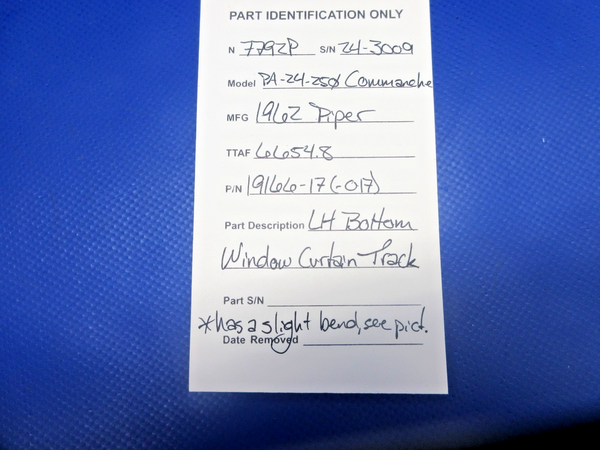 PART IDENTIFICATION ONLY
N 7792P S/N 24-3009
Model PA-24-250 Commanche
MFG 1962 Piper
TTAF 6654.8
P/N 19166-17 (-017)
Part Description LH Bottom
Window Curtain Track
Part S/N
*has a slight bend, see pict.
Date Removed